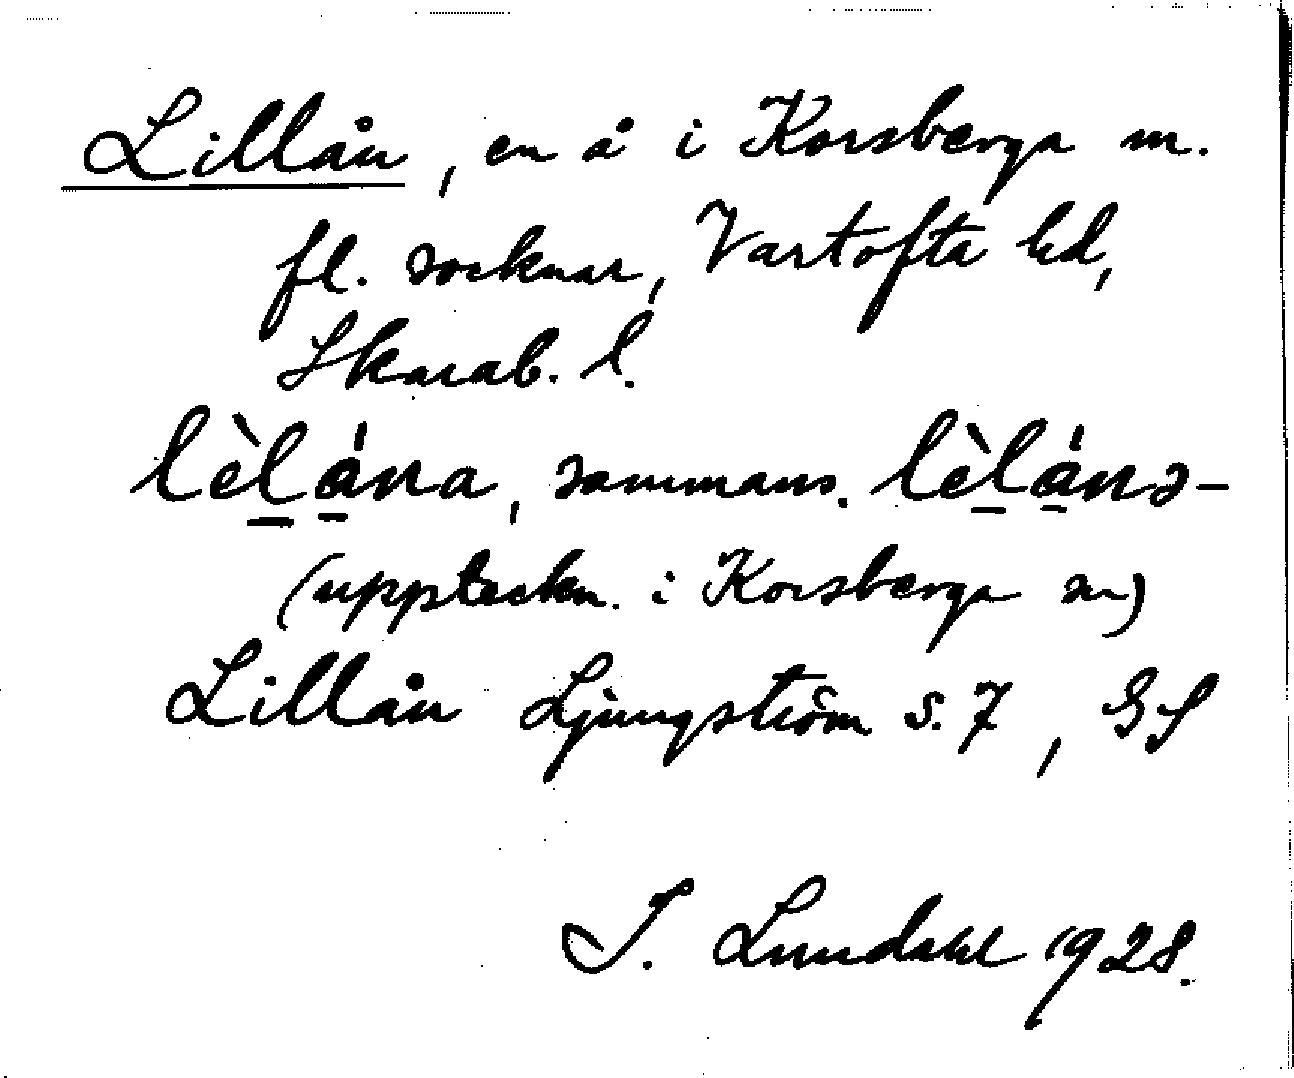 Lillån, en å i Korsberga m.
fl. socknar, Vartofta hd,
Skarab. l.
lèl̲ǻ̲na, sammans. lèl̲ǻ̲nə-
(uppteckn. i Korsberga sn)
Lillån Ljungström s. 7, GS
I. Lundahl 1928.